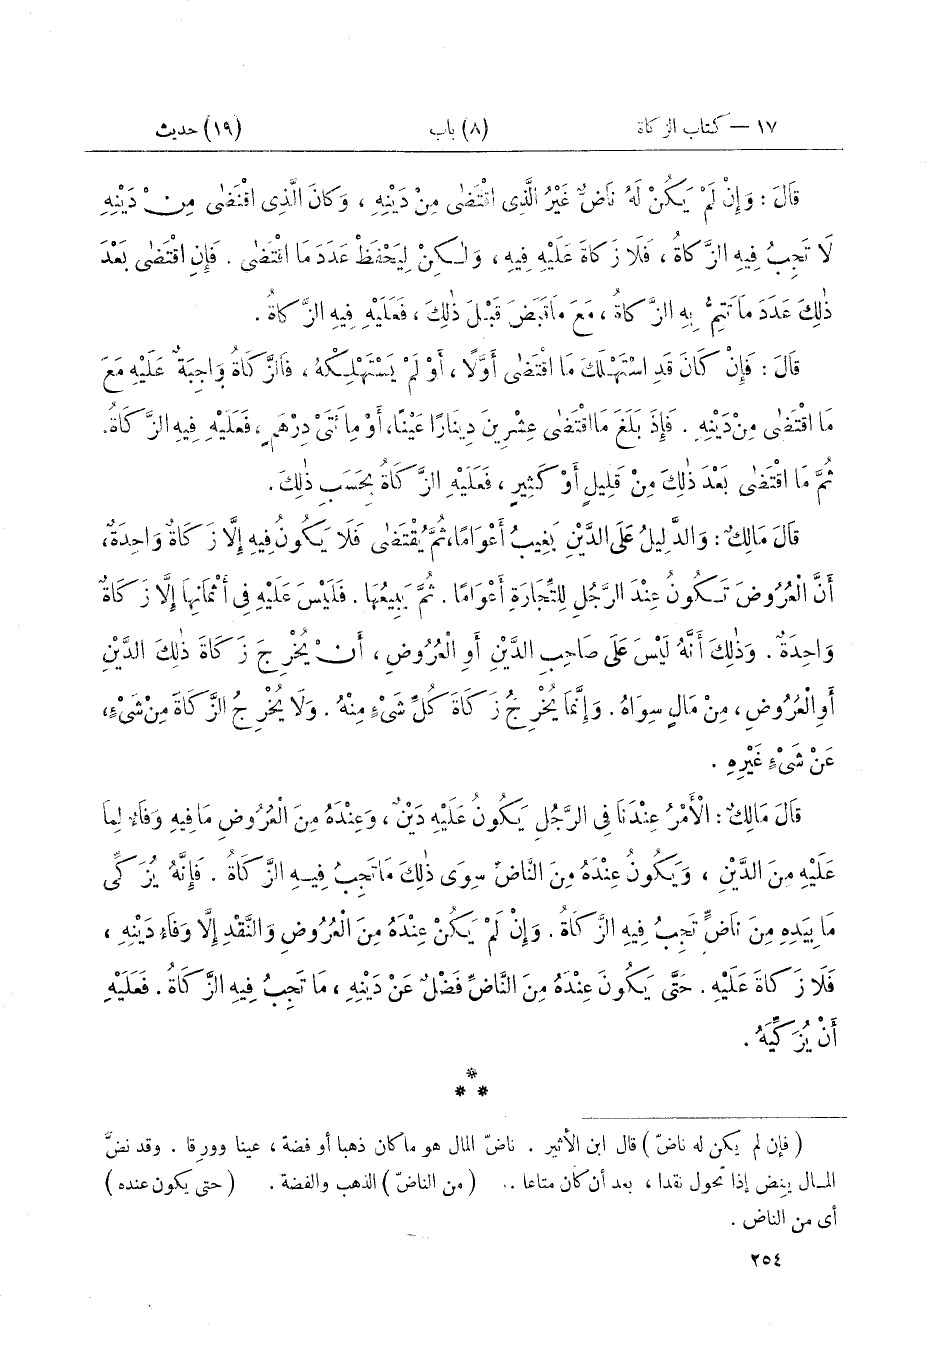 ١٧ – كتاب الزكاة (٨) باب (١٩) حديث
قَالَ : وَإِنْ لَمْ يَكُنْ لَهُ نَاضٌّ غَيْرُ الَّذِى اقْتَضَى مِنْ دَيْنِهِ ، وَكَانَ الَّذِى اقْتَضَى مِنْ دَيْنِهِ
لَا تَجِبُ فِيهِ الزَّكَاةُ ، فَلَا زَكَاةَ عَلَيْهِ فِيهِ ، وَلَكِنْ لِيَحْفَظْ عَدَدَ مَا اقْتَضَى . فَإِنِ اقْتَضَى بَعْدَ
ذَلِكَ عَدَدَ مَا تَتِمُّ بِهِ الزَّكَاةُ ، مَعَ مَا قَبَضَ قَبْلَ ذَلِكَ ، فَعَلَيْهِ فِيهِ الزَّكَاةُ .
قَالَ : فَإِنْ كَانَ قَدِ اسْتَهْلَكَ مَا اقْتَضَى أَوَّلًا ، أَوْ لَمْ يَسْتَهْلِكْهُ ، فَالزَّكَاةُ وَاجِبَةٌ عَلَيْهِ مَعَ
مَا اقْتَضَى مِنْ دَيْنِهِ . فَإِذَ بَلَغَ مَا اقْتَضَى عِشْرِينَ دِينَارًا عَيْنًا، أَوْ مِائَتَىْ دِرْهَمٍ، فَعَلَيْهِ فِيهِ الزَّكَاةُ.
ثُمَّ مَا اقْتَضَى بَعْدَ ذَلِكَ مِنْ قَلِيلٍ أَوْ كَثِيرٍ ، فَعَلَيْهِ الزَّكَاةُ بِحَسَبِ ذَلِكَ .
قَالَ مَالِكٌ : وَالدَّلِيلُ عَلَى الدَّيْنِ يَغِيبُ أَعْوَامًا، ثُمَّ يُقْتَضَى فَلَا يَكُونُ فِيهِ إِلَّا زَكَاةٌ وَاحِدَةٌ،
أَنَّ الْعُرُوضَ تَكُونُ عِنْدَ الرَّجُلِ لِلتِّجَارَةِ أَعْوَامًا . ثُمَّ يَبِيعُهَا . فَلَيْسَ عَلَيْهِ فِى أَثْمَانِهَا إِلَّا زَكَاةٌ
وَاحِدَةٌ . وَذَلِكَ أَنَّهُ لَيْسَ عَلَى صَاحِبِ الدَّيْنِ أَوِ الْعُرُوضِ ، أَنْ يُخْرِجَ زَكَاةَ ذَلِكَ الدَّيْنِ
أَوِ الْعُرُوضِ ، مِنْ مَالٍ سِوَاهُ . وَإِنَّمَا يُخْرِجُ زَكَاةَ كُلِّ شَىْءٍ مِنْهُ . وَلَا يُخْرِجُ الزَّكَاةَ مِنْ شَىْءٍ ،
عَنْ شَىْءٍ غَيْرِهِ .
قَالَ مَالِكٌ : الْأَمْرُ عِنْدَنَا فِى الرَّجُلِ يَكُونُ عَلَيْهِ دَيْنٌ ، وَعِنْدَهُ مِنَ الْعُرُوضِ مَا فِيهِ وَفَاءٌ لِمَا
عَلَيْهِ مِنَ الدَّيْنِ ، وَيَكُونُ عِنْدَهُ مِنَ النَّاضِّ سِوَى ذَلِكَ مَا تَجِبُ فِيهِ الزَّكَاةُ . فَإِنَّهُ يُزَكِّى
مَا بِيَدِهِ مِنْ نَاضٍّ تَجِبُ فِيهِ الزَّكَاةُ . وَإِنْ لَمْ يَكُنْ عِنْدَهُ مِنَ الْعُرُوضِ وَالنَّقْدِ إِلَّا وَفَاءُ دَيْنِهِ ،
فَلَا زَكَاةَ عَلَيْهِ . حَتَّى يَكُونَ عِنْدَهُ مِنَ النَّاضِّ فَضْلٌ عَنْ دَيْنِهِ ، مَا تَجِبُ فِيهِ الزَّكَاةُ . فَعَلَيْهِ
أَنْ يُزَكِّيَهُ .
*
* *
( فإن لم يكن له ناضّ ) قال ابن الأثير . ناضّ المال هو ماكان ذهبا أو فضة ، عينا وورقا . وقد نضَّ
المـال ينض إذا تحول نقدا ، بعد أن كان متاعا .. ( من الناضّ ) الذهب والفضة . ( حتى يكون عنده )
أى من الناض .
٢٥٤